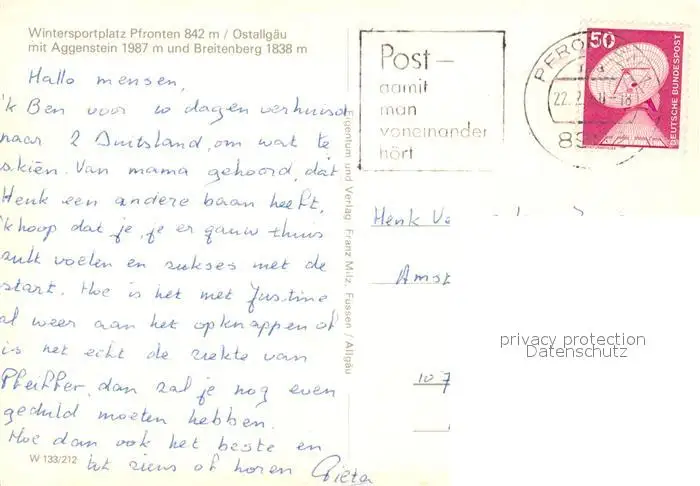 Wintersportplatz Pfronten 842 m / Ostallgäu
mit Aggenstein 1987 m und Breitenberg 1838 m
Hallo mensen,
'k Ben voor 10 dagen verhuisd
naar Duitsland, om wat te
skiën. Van mama gehoord, dat
Henk een andere baan heeft,
'k hoop dat je, je er gauw thuis
zult voelen en sukses met de
start. Hoe is het met Justine
al weer aan het opknappen of
is het echt de ziekte van
Pfeiffer, dan zal je nog even
geduld moeten hebben.
Hoe dan ook het beste en
tot ziens of horen
W 133/212
Eigentum und Verlag Franz Milz, Füssen / Allgäu
Post –
damit
man
voneinander
hört
PFRO
22. 2.
18
89
50
DEUTSCHE BUNDESPOST
Henk
Amst
107
privacy protection
Datenschutz